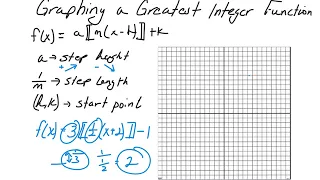 Graphing a Greatest Integer Function
f(x) = a⟦m(x-h)⟧+k
a → step height
+ -
1/m → step length
(h,k) → start point
f(x) = 3⟦1/2(x+2)⟧-1
3 1/(1/2) = 2